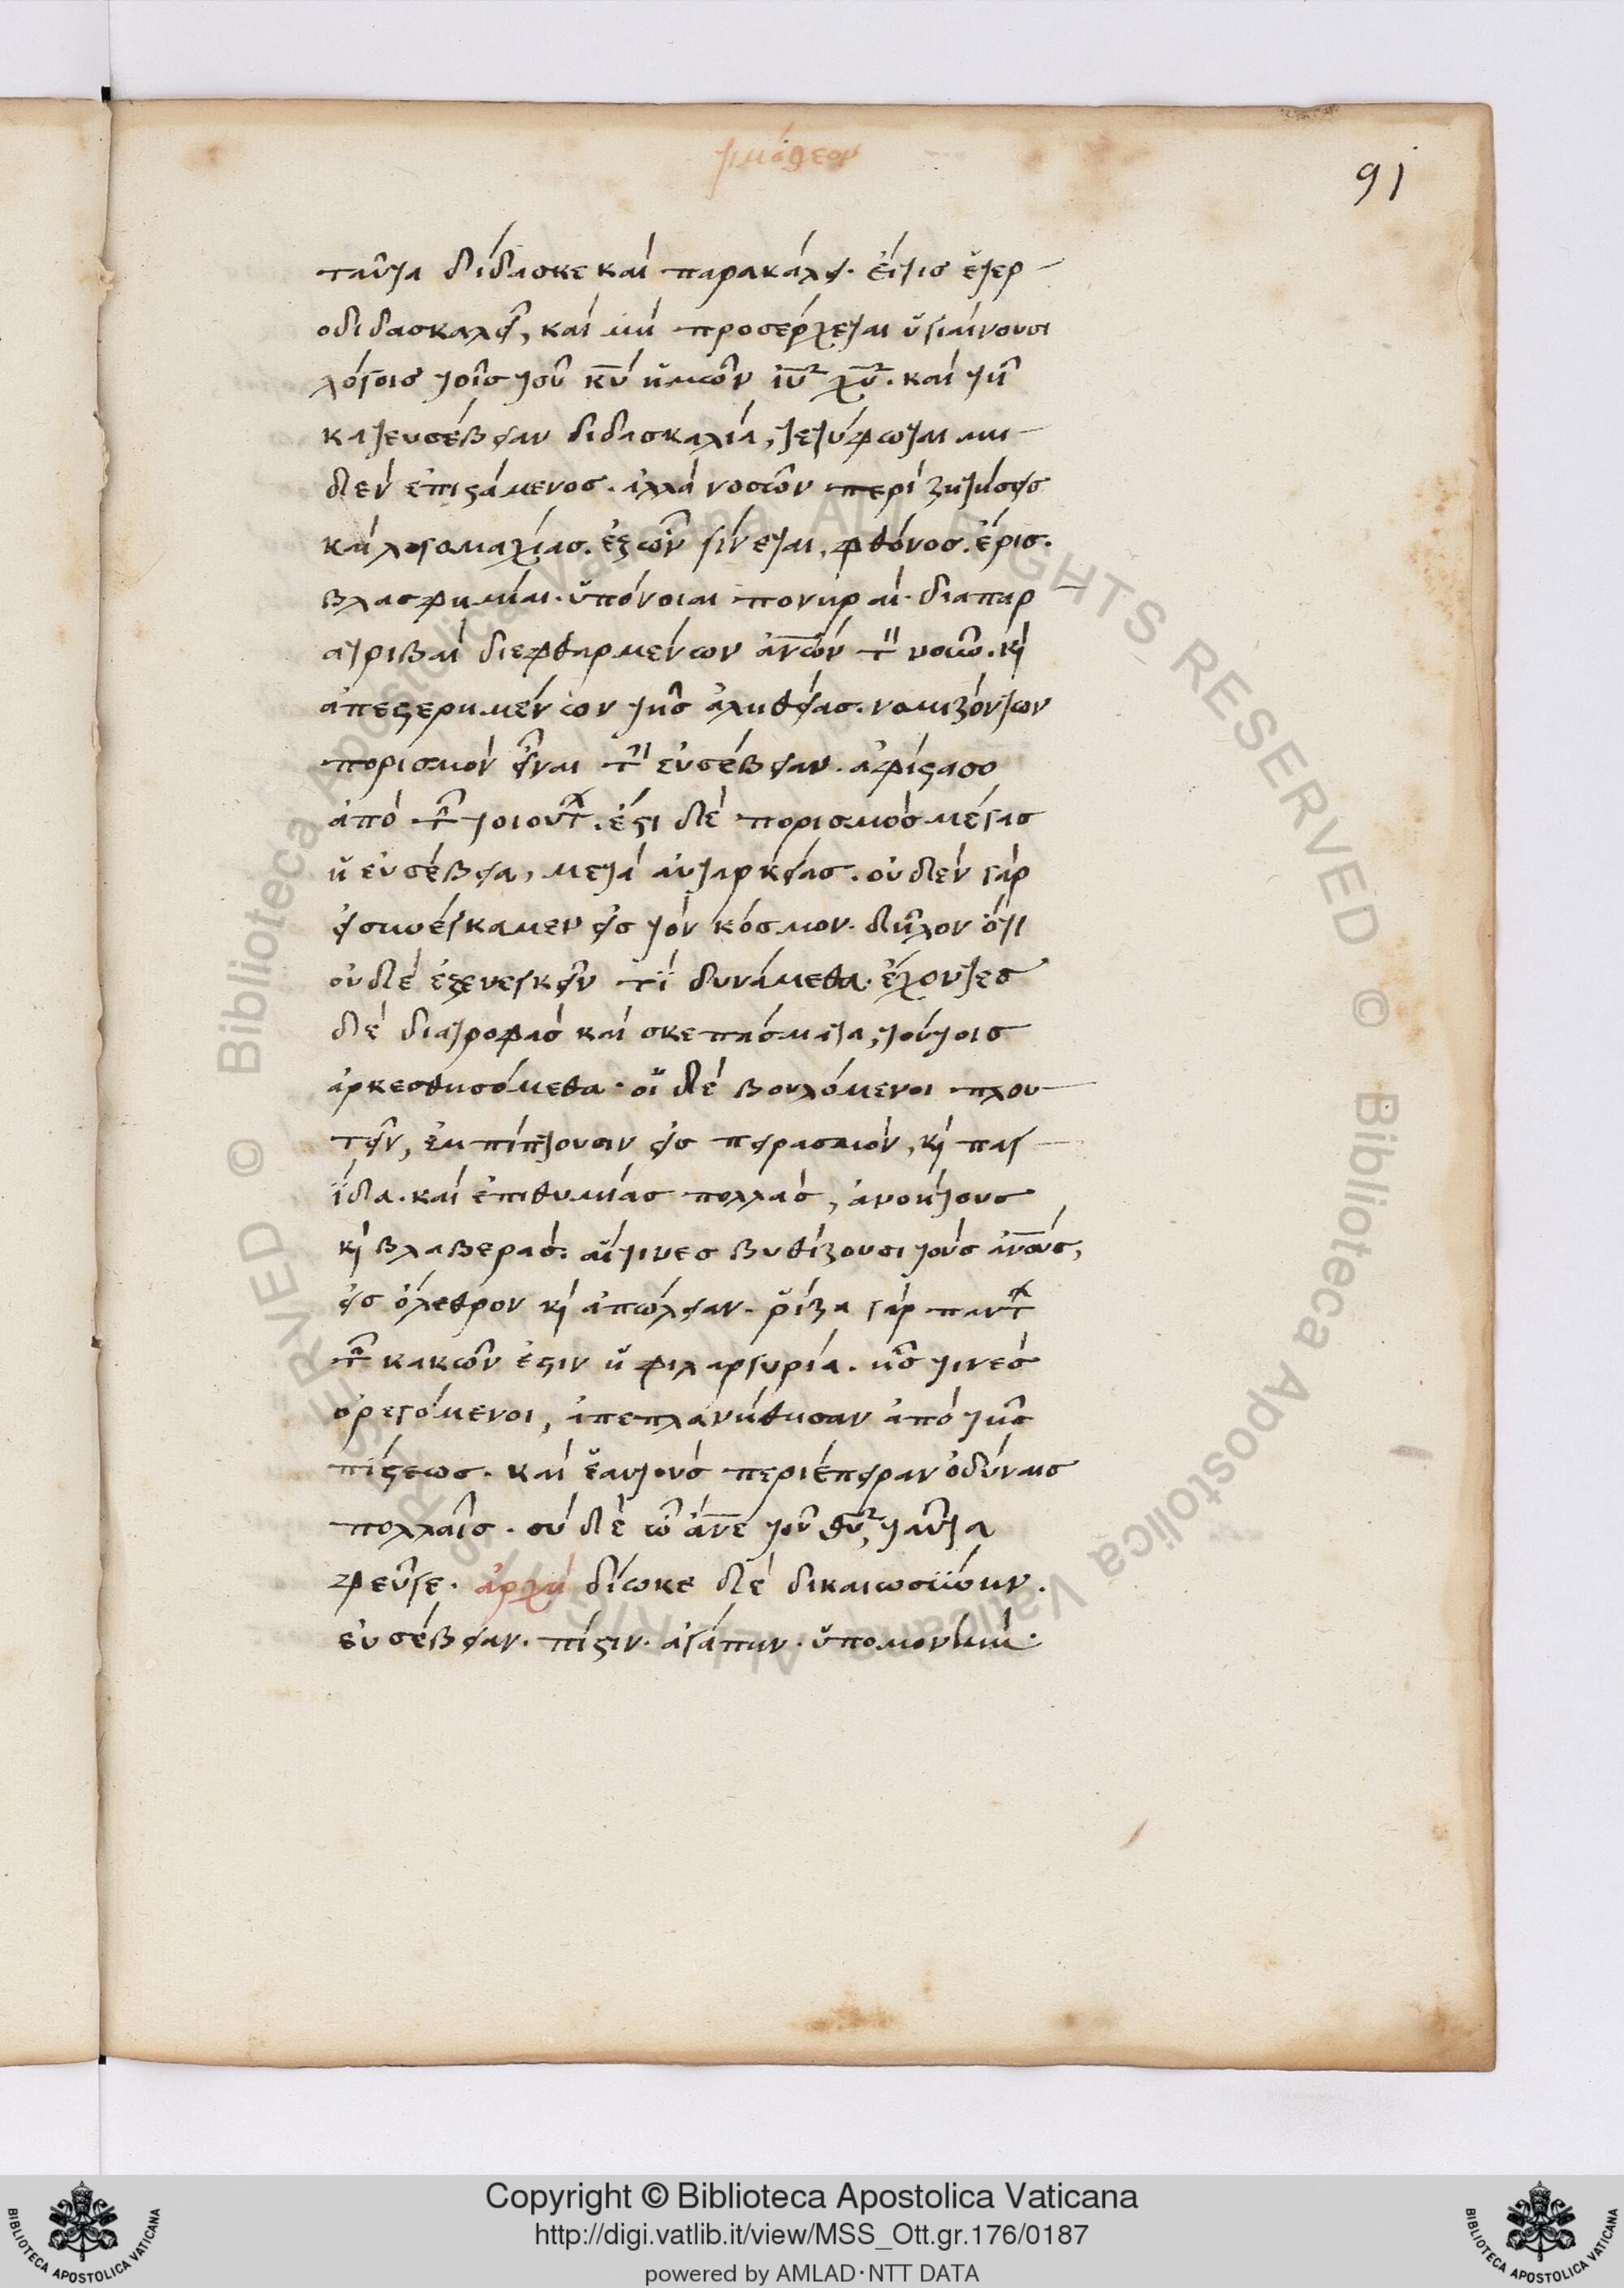 τιμόθεον
91
ταῦτα δίδασκε καὶ παρακάλει· εἴτις ἑτερ
οδιδασκαλεῖ, καὶ μὴ προσέρχεται ὑγιαίνουσι
λόγοις τοῖς τοῦ κ̅υ̅ ἡμῶν ἰ̅υ̅ χ̅υ̅. καὶ τῆ
κατευσέβειαν διδασκαλία, τετύφωται μη
δὲν ἐπιστάμενος. ἀλλὰ νοσῶν περὶ ζητήσεις
καὶ λογομαχίας. ἐξ ὧν γίνεται, φθόνος. ἔρις.
βλασφημίαι. ὑπόνοιαι πονηραί. διαπαρ
ατριβαὶ διεφθαρμένων ἀ̅ν̅ων τὸν νοῦν. κὶ
ἀπεστερημένων τῆς ἀληθείας. νομιζόντων
πορισμὸν εἶναι τὴν εὐσέβειαν. ἀφίστασο
ἀπὸ τῶν τοιούτων. ἔστι δὲ πορισμὸς μέγας
ἡ εὐσέβεια, μετὰ αὐταρκείας. οὐδὲν γὰρ
εἰσηνέγκαμεν εἰς τὸν κόσμον. δῆλον ὅτι
οὐδὲ ἐξενεγκεῖν τί δυνάμεθα. ἔχοντες
δὲ διατροφὰς καὶ σκεπάσματα, τούτοις
ἀρκεσθησόμεθα. οἱ δὲ βουλόμενοι πλου
τεῖν, ἐμπίπτουσιν εἰς πειρασμόν, κὶ παγ
ίδα. καὶ ἐπιθυμίας πολλάς, ἀνοήτους
κὶ βλαβεράς. αἵτινες βυθίζουσι τοὺς ἀ̅ν̅ους,
εἰς ὄλεθρον κὶ ἀπώλειαν. ῥίζα γὰρ παντων
τῶν κακῶν ἐστιν ἡ φιλαργυρία. ἧς τινὲς
ὀρεγόμενοι, ἀπεπλανήθησαν ἀπὸ τῆς
πίστεως. καὶ ἑαυτοὺς περιέπειραν ὀδύναις
πολλαῖς. σὺ δὲ ὦ ἄ̅ν̅ε τοῦ θ̅υ̅, ταῦτα
φεῦγε. ἀρχὴ δίωκε δὲ δικαιωσύνην.
εὐσέβειαν. πίστιν. ἀγάπην. ὑπομονήν.
Copyright © Biblioteca Apostolica Vaticana
http://digi.vatlib.it/view/MSS_Ott.gr.176/0187
powered by AMLAD·NTT DATA